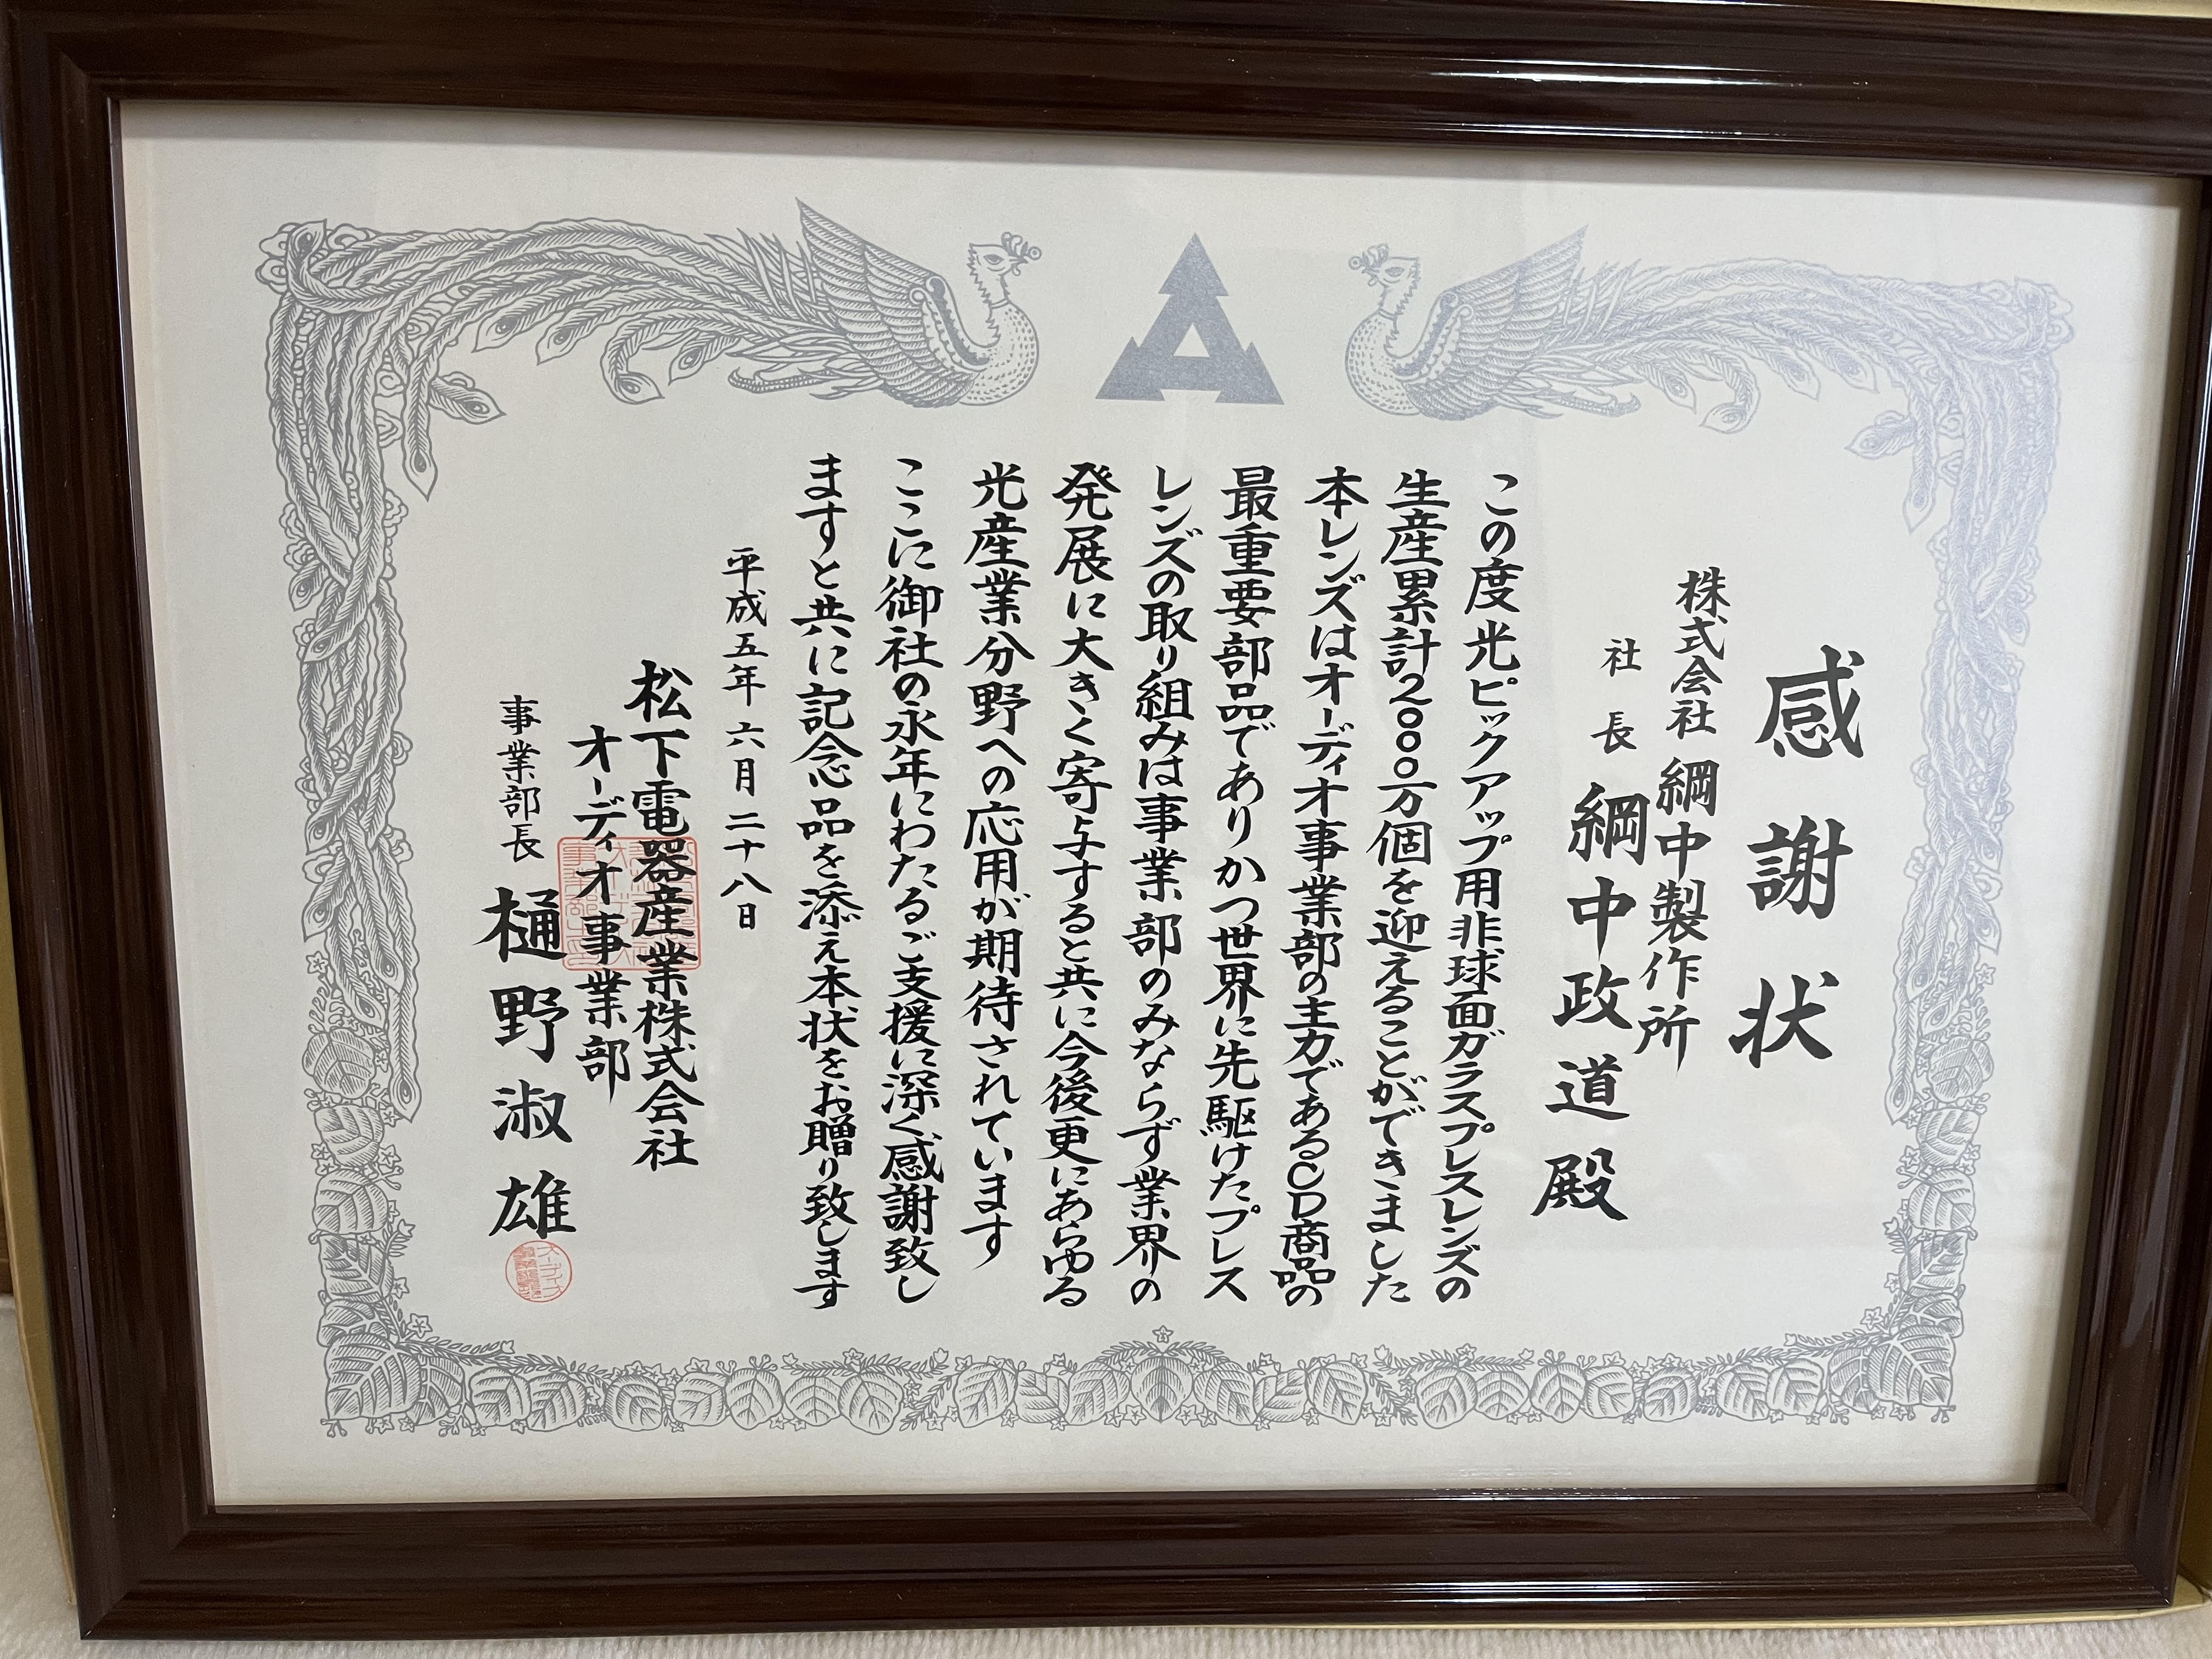 感謝状
株式会社 綱中製作所
社長 綱中政道殿
この度光ピックアップ用非球面ガラスプレスレンズの
生産累計2000万個を迎えることができました
本レンズはオーディオ事業部の主力であるCD商品の
最重要部品でありかつ世界に先駆けたプレス
レンズの取り組みは事業部のみならず業界の
発展に大きく寄与すると共に今後更にあらゆる
光産業分野への応用が期待されています
ここに御社の永年にわたるご支援に深く感謝致し
ますと共に記念品を添え本状をお贈り致します
平成五年六月二十八日
松下電器産業株式会社
オーディオ事業部
事業部長 樋野淑雄